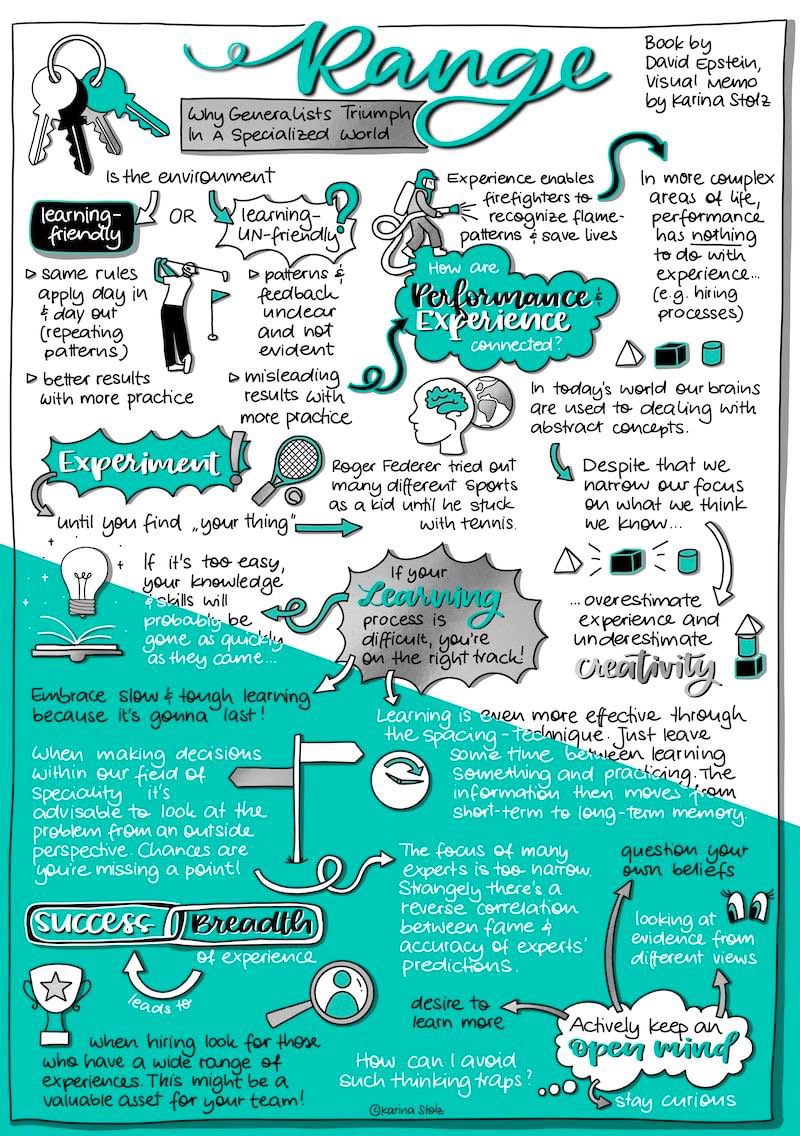 Range
Why Generalists Triumph
In A Specialized World
Book by
David Epstein,
Visual Memo
by Karina Stolz
Is the environment
learning-
friendly
OR
learning-
UN-friendly
?
▷ same rules
apply day in
& day out
(repeating
patterns)
▷ better results
with more practice
▷ patterns &
feedback
unclear
and not
evident
▷ misleading
results with
more practice
Experience enables
firefighters to
recognize flame-
patterns & save lives
How are
Performance &
Experience
connected?
In more complex
areas of life,
performance
has nothing
to do with
experience...
(e.g. hiring
processes)
In today's world our brains
are used to dealing with
abstract concepts.
Despite that we
narrow our focus
on what we think
we know...
...overestimate
experience and
underestimate
creativity
Experiment!
until you find „your thing"
Roger Federer tried out
many different sports
as a kid until he stuck
with tennis.
If your
Learning
process is
difficult, you're
on the right track!
If it's too easy,
your knowledge
& skills will
probably be
gone as quickly
as they came...
Embrace slow & tough learning
because it's gonna last!
Learning is even more effective through
the spacing-technique. Just leave
some time between learning
something and practicing. The
information then moves from
short-term to long-term memory.
When making decisions
within our field of
speciality it's
advisable to look at the
problem from an outside
perspective. Chances are
you're missing a point!
The focus of many
experts is too narrow.
Strangely there's a
reverse correlation
between fame &
accuracy of experts'
predictions.
Success
Breadth
of experience
leads to
when hiring look for those
who have a wide range of
experiences. This might be a
valuable asset for your team!
How can I avoid
such thinking traps?
Actively keep an
open mind
desire to
learn more
question your
own beliefs
looking at
evidence from
different views
stay curious
©Karina Stolz